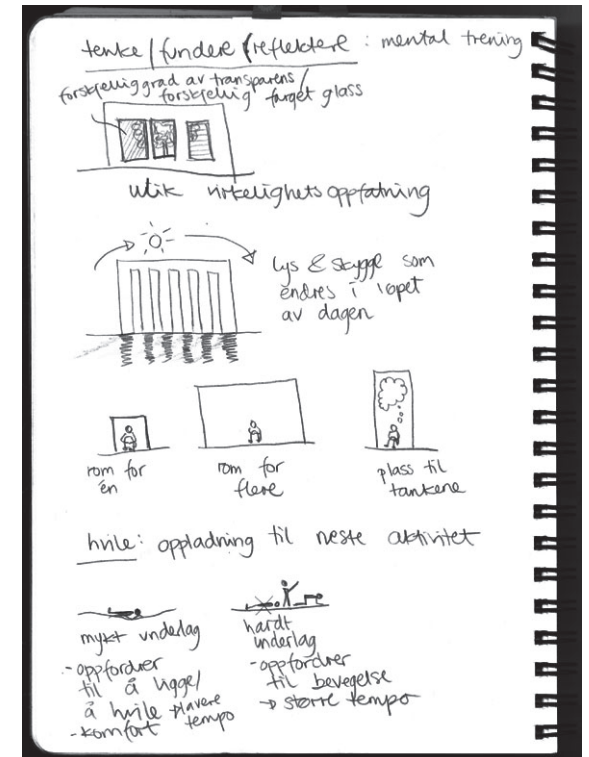 tenke / fundere / reflektere : mental trening
forskjellig grad av transparens /
forskjellig farget glass
ulik virkelighetsoppfatning
lys & skygge som
endres i løpet
av dagen
rom for
én
rom for
flere
plass til
tankene
hvile: oppladning til neste aktivitet
mykt underlag
- oppfordrer
til å ligge/
å hvile → lavere
tempo
- komfort
hardt
underlag
- oppfordrer
til bevegelse
→ større tempo